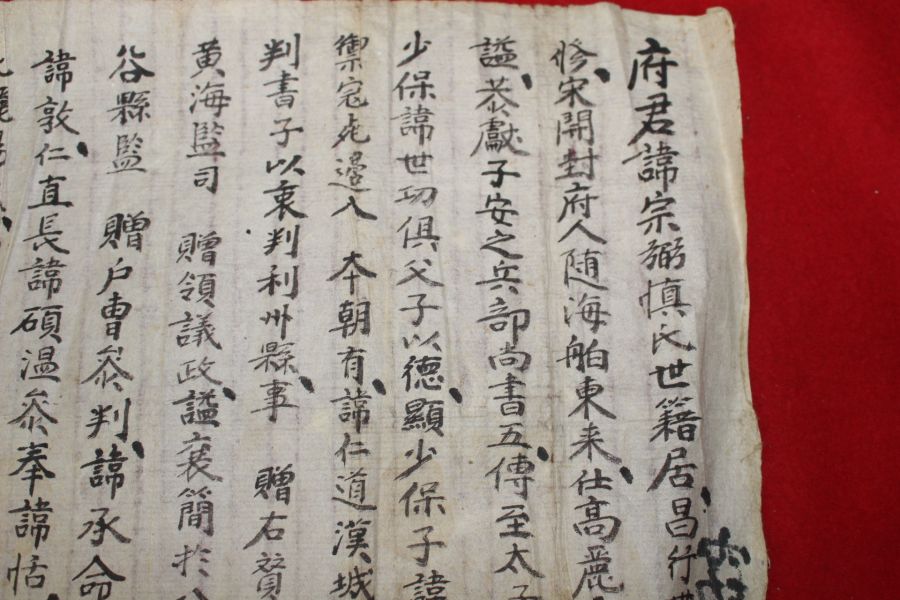 府君諱宗弼慎氏世籍居昌行
修宋開封府人随海舶東来仕高麗
謚恭獻子安之兵部尚書五傳至太子
少保諱世功俱父子以德顯少保子諱
禦寇死邉入本朝有諱仁道漢城
判書子以衷判利川縣事 贈右贊
黄海監司 贈領議政謚襄簡於
谷縣監 贈户曹叅判諱承命
諱敦仁直長諱碩温叅奉諱恬